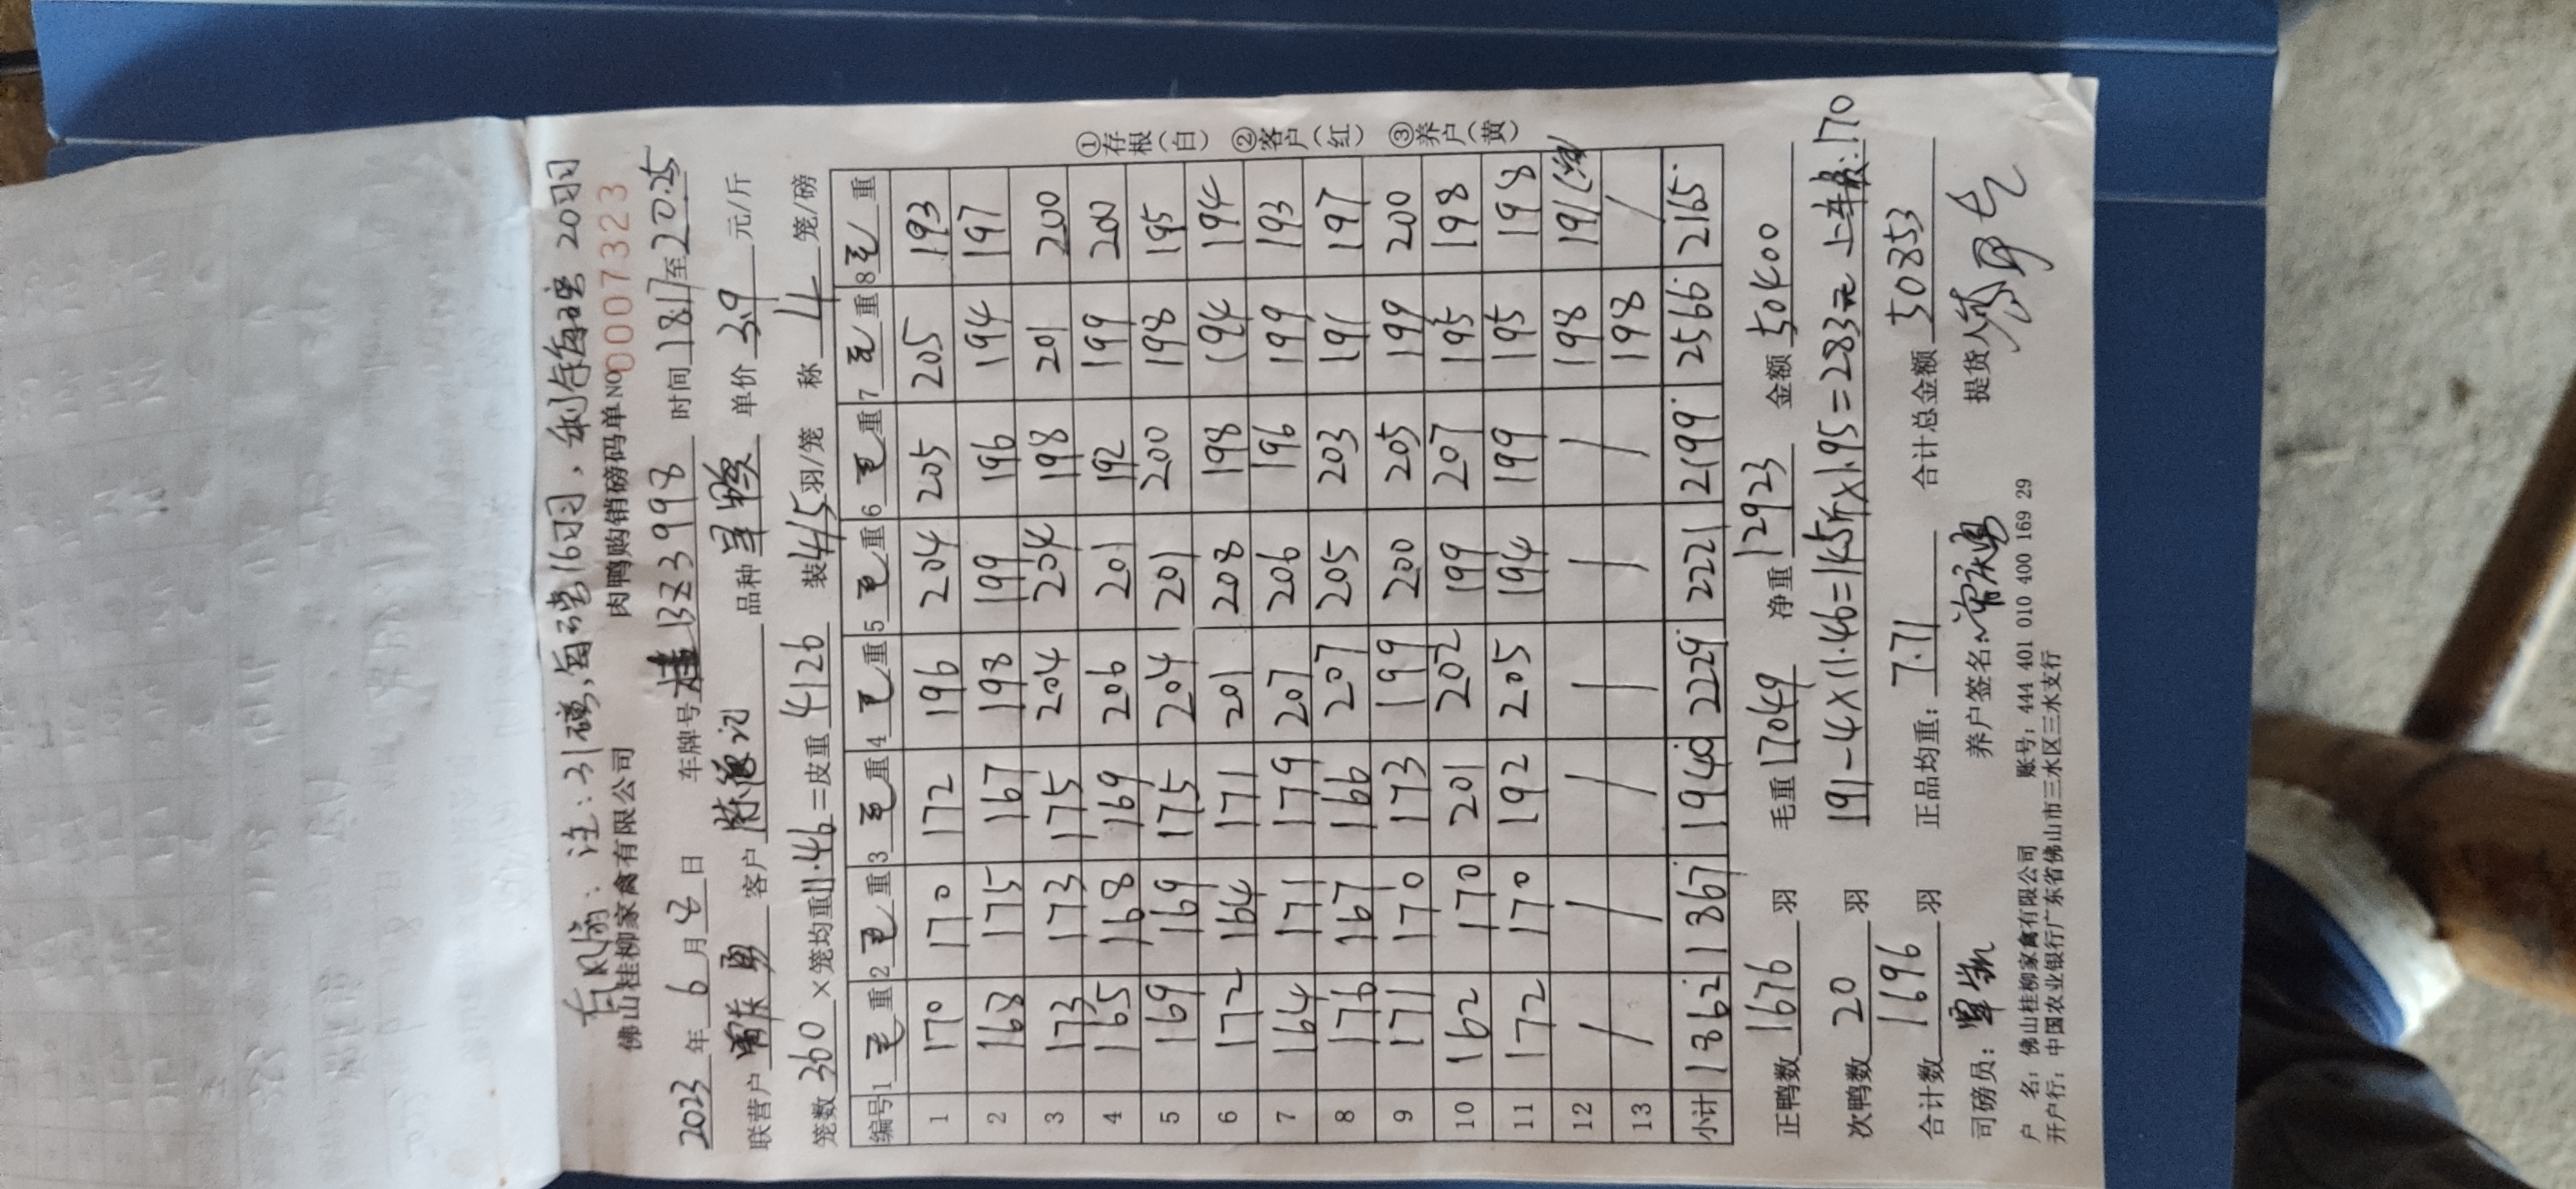 有风淘:注:31磅,每磅16羽,剩余每磅20羽
佛山桂柳家禽有限公司 肉鸭购销磅码单 NO 0007323
2023年6月8日 车牌号 桂BZ3998 时间 1817至20:25
联营户 客户 陈德记 品种 单价 3.9 元/斤
笼数 360 ×笼均重 11.46=皮重 4126 装4/5羽/笼 称 4 笼/磅
编号 1毛重 2毛重 3毛重 4毛重 5毛重 6毛重 7毛重 8毛重
1 170 170 172 196 204 205 205 193
2 168 175 167 198 199 196 194 197
3 173 173 175 204 204 198 201 200
4 165 168 169 206 201 192 199 200
5 169 169 175 204 201 200 198 195
6 172 164 171 201 208 198 194 194
7 164 171 179 207 206 196 199 193
8 176 167 166 207 205 203 191 197
9 171 170 173 199 200 205 199 200
10 162 170 201 202 199 207 195 198
11 172 170 192 205 194 199 195 198
12 / / / / / / 198 191(次)
13 / / / / / / 198 /
小计 1862 1867 1940 2229 2221 2199 2566 2165
①存根(白) ②客户(红) ③养户(黄)
正鸭数 1676 羽 毛重 17049 净重 12923 金额 50400
次鸭数 20 羽 191-4×11.46=145斤×1.95=283元 上车费:170
合计数 1696 羽 正品均重: 7.71 合计总金额 50853
司磅员: 养户签名: 提货人
户 名: 佛山桂柳家禽有限公司 账号: 444 401 010 400 169 29
开户行: 中国农业银行广东省佛山市三水区三水支行